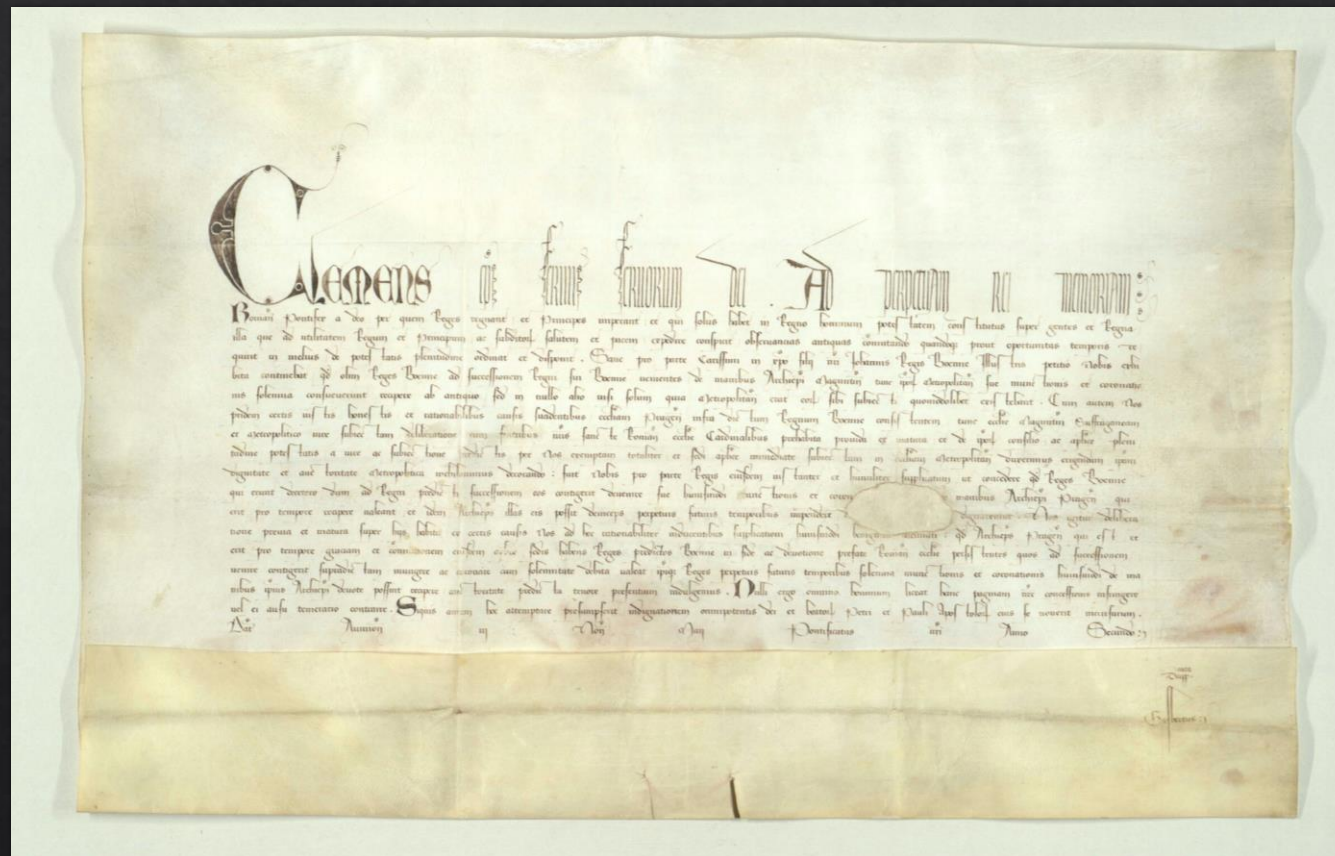 Clemens ep̃s seruus seruorum dei . Ad perpetuam rei memoriam
Roman̄ Pontifex a deo per quem Reges regnant et Principes imperant et qui solus habet in Regno hominum potestatem constitutus super gentes et Regna
illa que ad utilitatem Regum et Principum ac subditoꝝ salutem et pacem expedire conspicit obseruancias antiquas prout oportunitas temporis re
quirit in melius de potestatis plenitudine ordinat et disponit . Sane pro parte Carissimi in xp̃o filij nr̃i Johannis Regis Boemie Illustris petitio Nobis exhi
bita continebat qd̃ olim Reges Boemie ad successionem Regni sui Boemie uenientes de manibus Archiepi Maguntin̄ tunc ip̃oꝝ Metropolitan̄ sue munctionis et coronatio
nis solennia consueuerunt recipere ab antiquo sed in nullo alio nisi solum quia Metropolitan̄ erat eoꝝ sibi subiecti quomodolibet existebant . Cum autem Nos
pridem certis iustis honestis et rationabilibus causis suadentibus eccliam Pragen̄ infra dictum Regnum Boemie consistentem tunc ecclie Maguntin̄ Suffraganeam
et Metropolitico iure subiectam deliberatione cum fratribus nr̃is sancte Roman̄ ecclie Cardinalibus prehabita prouida et matura et de ip̃oꝝ consilio ac aplice pleni
tudine potestatis a iure ac subiectione predictis per Nos exemptam totaliter et sedi aplice immediate subiectam in eccliam Metropolitan̄ duxerimus erigendam ipm̃
dignitate et auctoritate Metropolitica decorando : fuit Nobis pro parte Regis eiusdem instanter et humiliter supplicatum ut concedere qd̃ Reges Boemie
qui erunt deinceps dum ad Regni predicti successionem eos contigerit deuenire sue huiusmodi munctionis et coron manibus Archiepi Pragen̄ qui
erit pro tempore recipere ualeant et idem Archiep̃s illas eis possit deinceps perpetuis futuris temporibus impendere dignaremur . Nos igitur delibera
tione preuia et matura super hijs habita ex certis causis Nos ad hec rationabiliter inducentibus supplicationi huiusmodi qd̃ Archiep̃s Pragen̄ qui est et
erit pro tempore graciam et comunionem eiusdem aplice sedis habens Reges predictos Boemie in fide ac deuotione prefate Roman̄ ecclie persistentes quos ad successionem
uenire contigerit supradictam inungere ac coronare cum solemnitate debita ualeat ipiqꝫ Reges perpetuis futuris temporibus solennia munctionis et coronationis huiusmodi de ma
nibus ipius Archiepi deuote possint recipere auctoritate predicta tenore presentium indulgemus . Nulli ergo omnino hominum liceat hanc paginam nr̃e concessionis infringere
uel ei ausu temerario contraire . Siquis autem hec attemptare presumpserit indignationem omnipotentis dei et beatoꝝ Petri et Pauli Apostoloꝝ eius se nouerit incursurum .
Dat̃ Auinion̄ iij Non̄ Maij Pontificatus nr̃i Anno Secundo